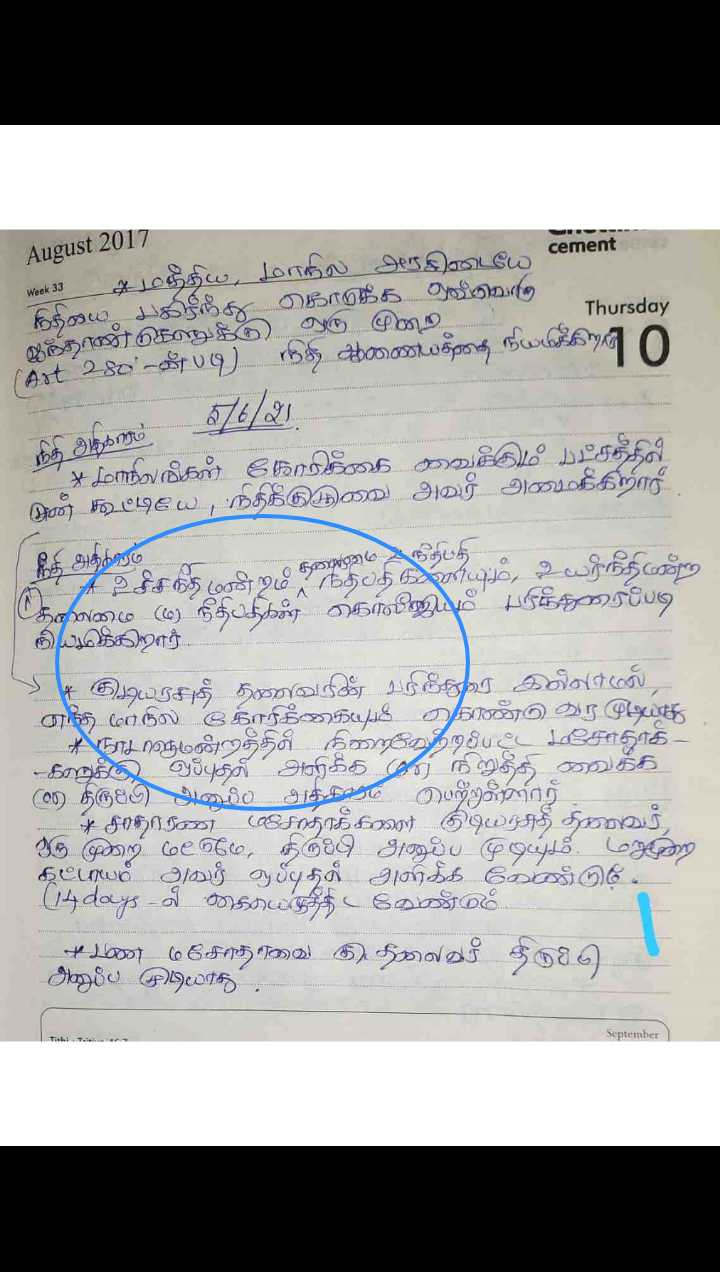 August 2017
cement
Week 33
* மத்திய, மாநில அரசிடையே
நிதியை பகிர்ந்து கொடுக்க ஒவ்வொரு
Thursday
ஐந்தாண்டுகளுக்கு ஒரு முறை
10
(Art 280 -ன்படி) நிதி ஆணையத்தை நியமிக்கிறார்
5/6/21
நிதி அதிகாரம்
* மாநிலங்கள் கோரிக்கை வைக்கும் பட்சத்தில்
முன் கூட்டியே, நிதிக்குழுவை அவர் அமைக்கிறார்
நீதி அதிகாரம்
தலைமை நீதிபதி
* உச்சநீதிமன்றம் ^ நீதிபதிகளையும், உயர்நீதிமன்ற
தலைமை (ம) நீதிபதிகள் கொலிஜியம் பரிந்துரைப்படி
நியமிக்கிறார்
* குடியரசுத் தலைவரின் பரிந்துரை இல்லாமல்,
எந்த மாநில கோரிக்கையும் கொண்டு வர முடியாது
* நாடாளுமன்றத்தில் நிறைவேற்றப்பட்ட மசோதாக்-
-களுக்கு ஒப்புதல் அளிக்க (or) நிறுத்தி வைக்க
(or) திருப்பி அனுப்ப அதிகாரம் பெற்றுள்ளார்
* சாதாரண மசோதாக்களை குடியரசுத் தலைவர்,
ஒரு முறை மட்டுமே, திருப்பி அனுப்ப முடியும். மறுமுறை
கட்டாயம் அவர் ஒப்புதல் அளிக்க வேண்டும்.
(14 days - ல் கையெழுத்திட வேண்டும்
* பண மசோதாவை கு. தலைவர் திருப்பி
அனுப்ப முடியாது.
September